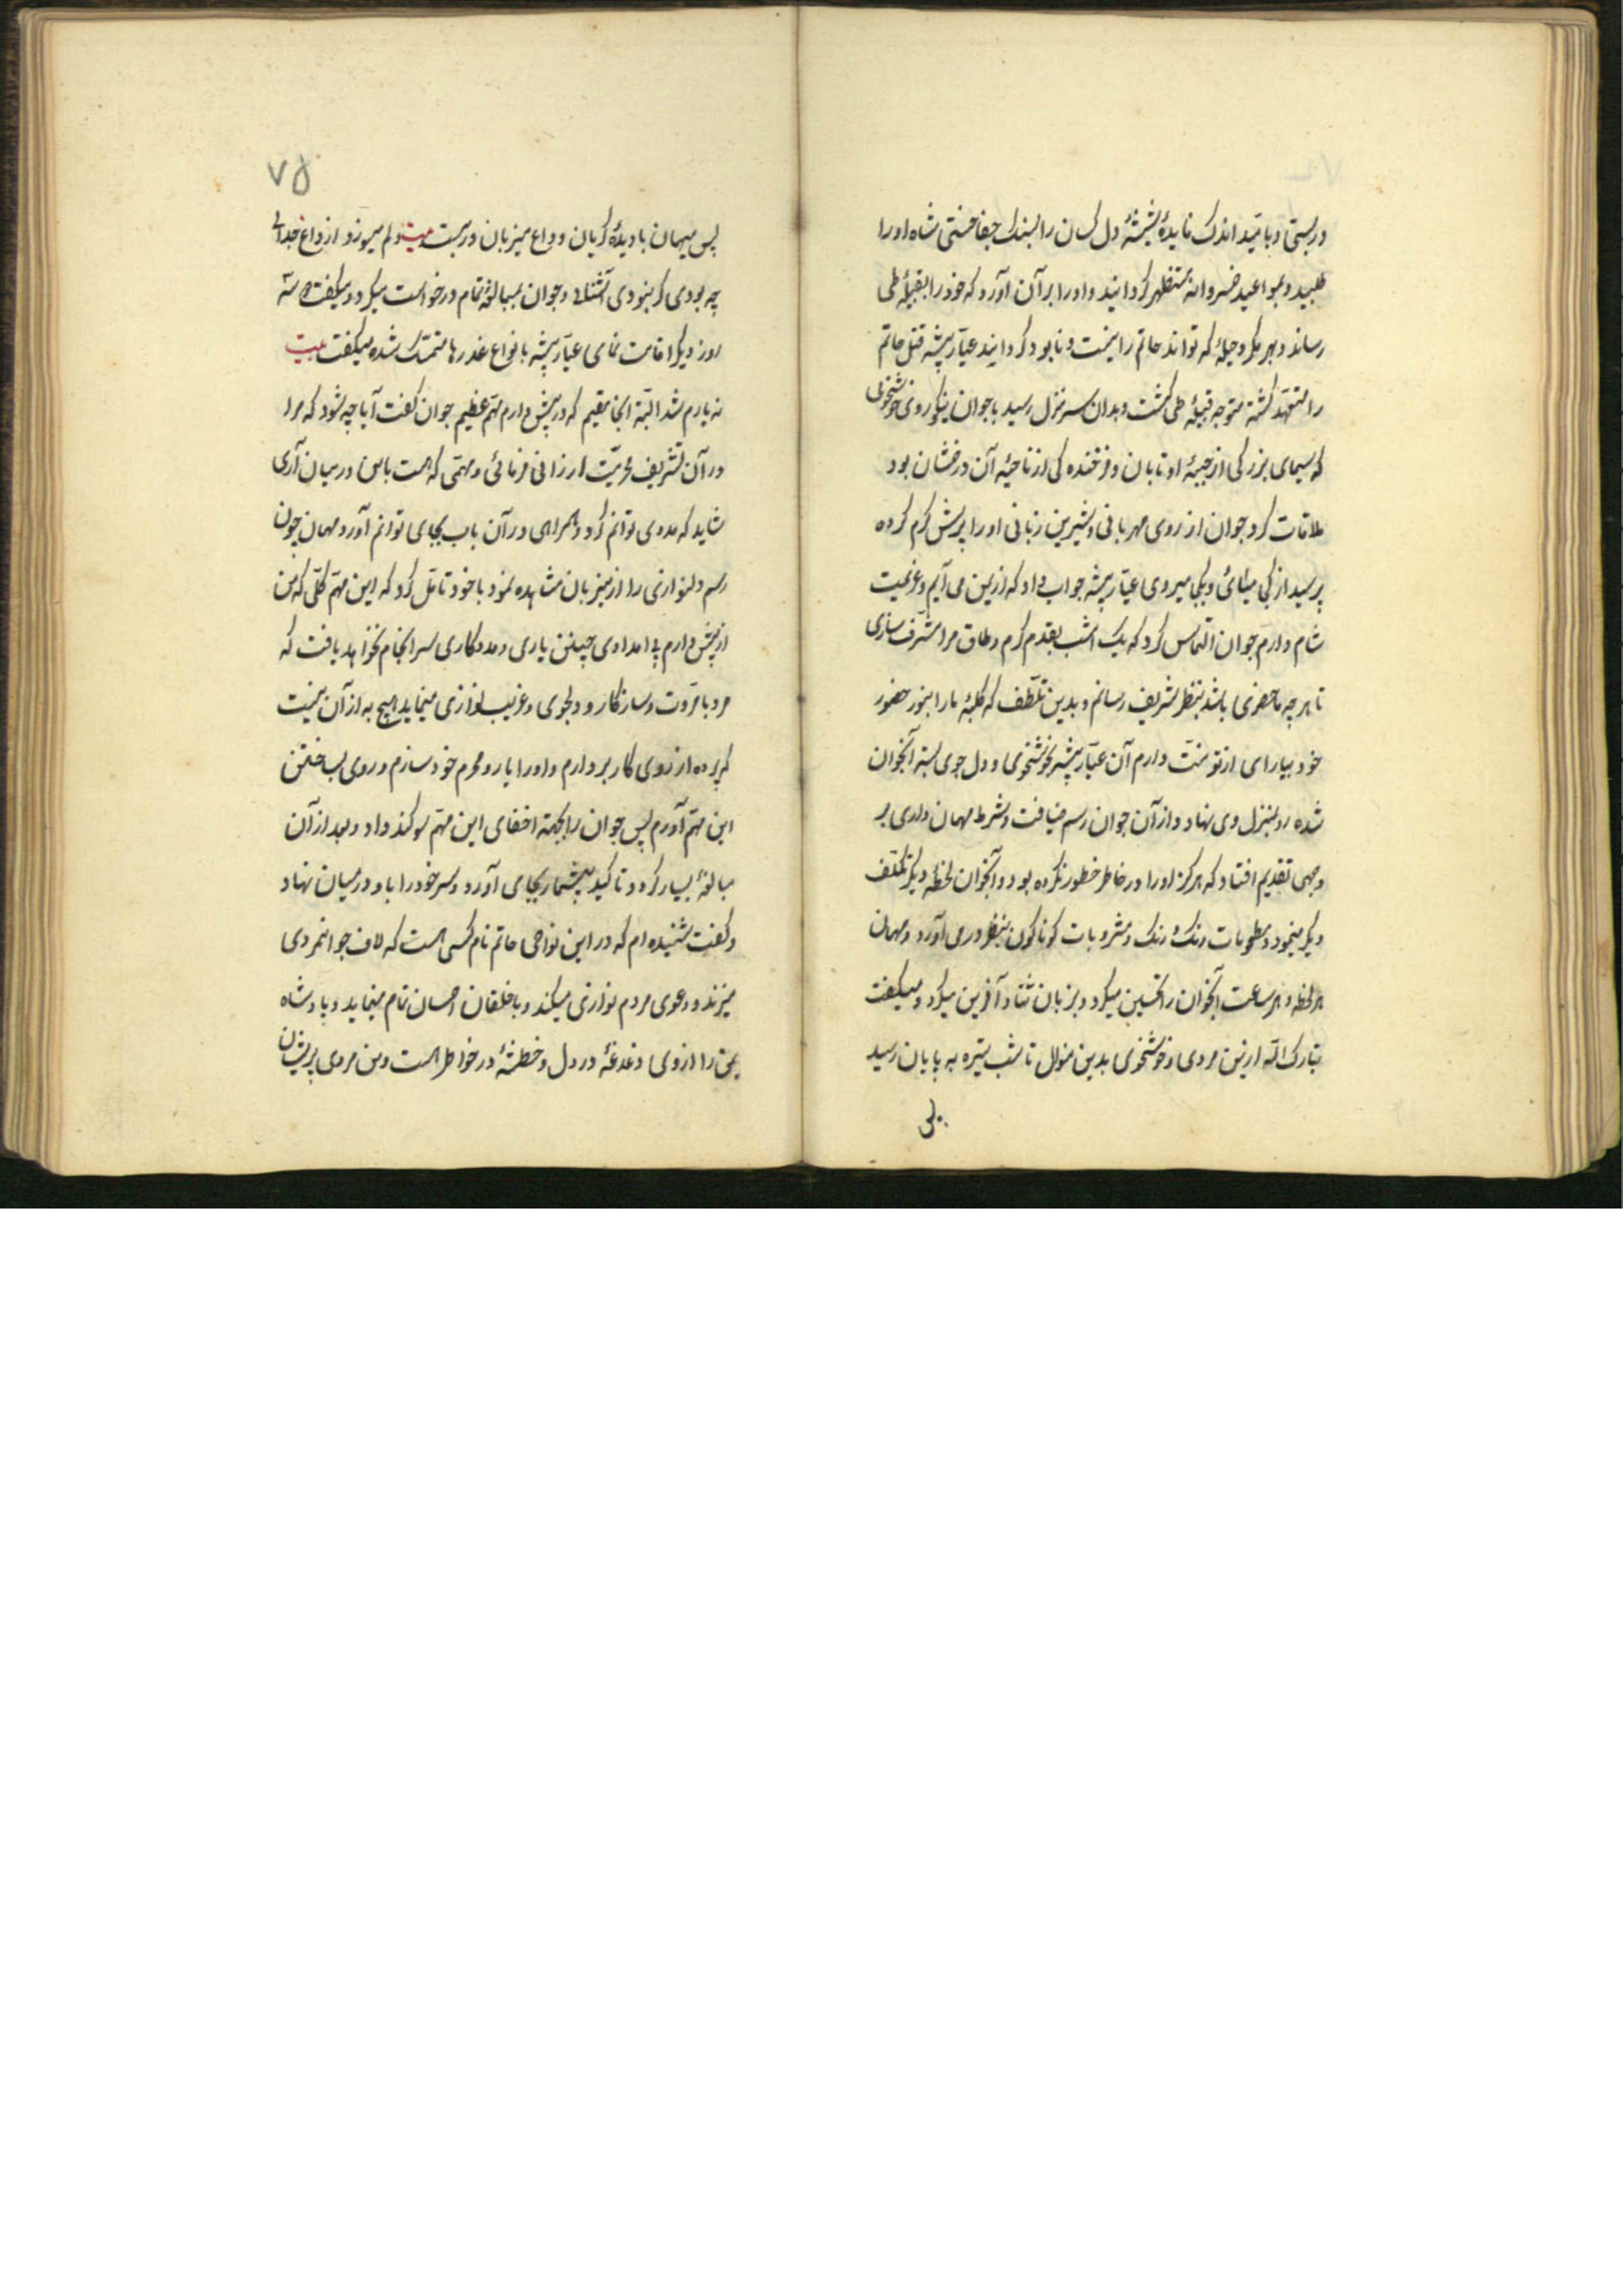 در بستی و بامید اندک فایدهٔ شیشهٔ دل کسان را بسنک جفا خستی شاه او را
طلبید و بمواعید خسروانه مستظهر کردانید و او را بر آن آورد که خود را بقبیلهٔ طی
رساند و بهر مکر و حیلهٔ که تواند حاتم را نیست و نابود کرداند عیار پیشه قتل حاتم
را متعهد کشته متوجه قبیلهٔ طی کشت و بدان سر منزل رسید با جوان نیکوروی خوشخوئی
که سیمای بزرکی از جبههٔ او تابان و فرخنده کی از ناحیهٔ آن درخشان بود
ملاقات کرد جوان از روی مهربانی و شیرین زبانی او را پرسش کرم کرده
پرسید از کجا میآئی و بکجا میروی عیار پیشه جواب داد که از یمن می آیم و عزیمت
شام دارم جوان التماس کرد که یک امشب بقدم کرم وطاق مرا مشرف سازی
تا هر چه ماحضری باشد بنظر شریف رسانم و بدین تلطف که کلبهٔ ما را بنور حضور
خود بیارای از تو منت دارم آن عیار پیشه بخوشخوی و دل جوی بستهٔ آنجوان
شده رو بمنزل وی نهاد و از آن جوان رسم ضیافت و شرط مهمان داری بر
وجهی تقدیم افتاد که هرکز او را در خاطر خطور نکرده بود و آنجوان لحظهٔ دیکر تکلف
دیکر مینمود و مطعومات رنک رنک و مشروبات کوناکون بنظر در می آورد و مهمان
هر لحظه و هر ساعت آنجوان را تحسین میکرد و بزبان ثنا و آفرین میکرد و میکفت
تبارک الله ازین مردمی و خوشخوی بدین منوال تا شب تیره به پایان رسید
پس میهمان با دیدهٔ کریان وداع میزبان در بست بیت دلم میسوزد از داغ جدائی
چه بودی کر نبودی آشنائی و جوان بمبالغهٔ تمام درخواست میکرد و میکفت که سه
روز دیکر اقامت نمای عیار پیشه بانواع عذرها متمسک شده میکفت بیت
نه یارم شد البته اینجا مقیم که در پیش دارم مهم عظیم جوان کفت آیا چه شود که مرا
در آن تشریف محرمیت ارزانی فرمائی و مهمی که هست با من در میان آری
شاید که مددی توانم کرد و همراهی در آن باب بجای توانم آورد مهمان چون
رسم دلنوازی را از میزبان مشاهده نمود با خود تامل کرد که این مهم کلی که من
از پیش دارم بی امدادی چنین یاری و مددکاری سرانجام نخواهد یافت که
مرد با مروت و سازکار و دلجوی و غریب نوازی مینماید هیچ به از آن نیست
که پرده از روی کار بردارم و او را یار و محرم خود سازم و روی بساختن
این مهم آورم پس جوان را بجهة اخفای این مهم سوکند داد و بعد از آن
مبالغهٔ بسیار کرد و تاکید بیشمار بجای آورد و سر خود را با او در میان نهاد
و کفت شنیده ام که در این نواحی حاتم نام کسی است که لاف جوانمردی
میزند و دعوی مردم نوازی میکند و با خلقان احسان تمام مینماید و پادشاه
یمن را از وی دغدغهٔ در دل و خطشهٔ در خواطر است و من مردی پریشان